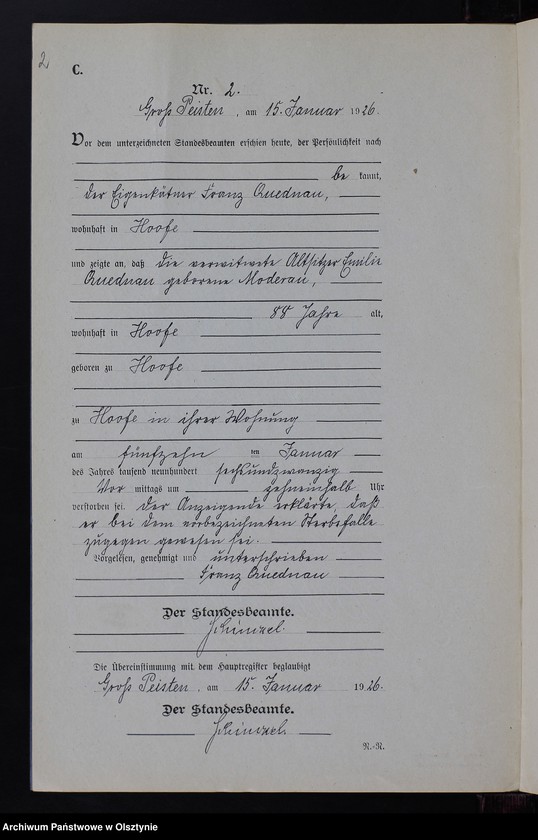 2
C.
Nr. 2.
Gross Peisten, am 15. Januar 1926.
Vor dem unterzeichneten Standesbeamten erschien heute, der Persönlichkeit nach
be kannt,
der Eigenkätner Franz Quednau,
wohnhaft in Hoofe
und zeigte an, daß die verwitwete Altsitzer Emilie
Quednau geborene Moderau,
88 Jahre alt,
wohnhaft in Hoofe
geboren zu Hoofe
zu Hoofe in ihrer Wohnung
am fünfzehn ten Januar
des Jahres tausend neunhundert sechsundzwanzig
Vor mittags um zehneinhalb Uhr
verstorben sei. Der Anzeigende erklärte, daß
er bei dem vorbezeichneten Sterbefalle
zugegen gewesen sei.
Vorgelesen, genehmigt und unterschrieben
Franz Quednau
Der Standesbeamte.
Die Übereinstimmung mit dem Hauptregister beglaubigt
Gross Peisten, am 15. Januar 1926.
Der Standesbeamte.
N.-R.
Archiwum Państwowe w Olsztynie